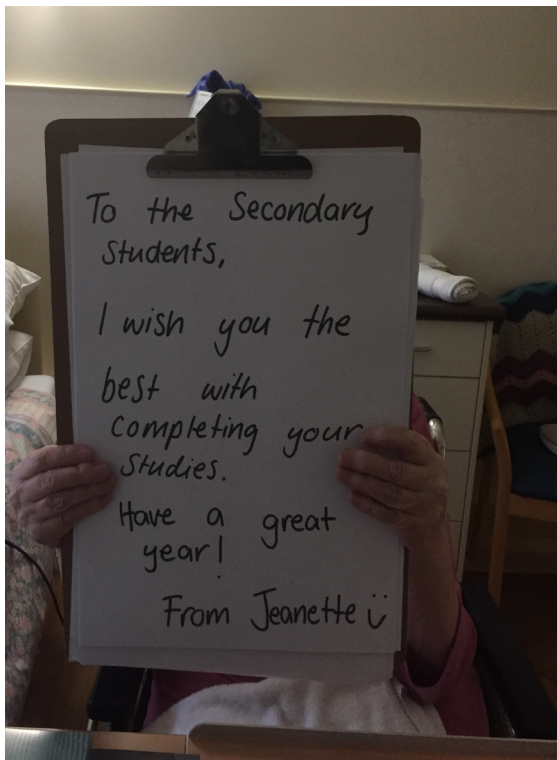 To the Secondary
Students,
I wish you the
best with
completing your
studies.
Have a great
year!
From Jeanette ü